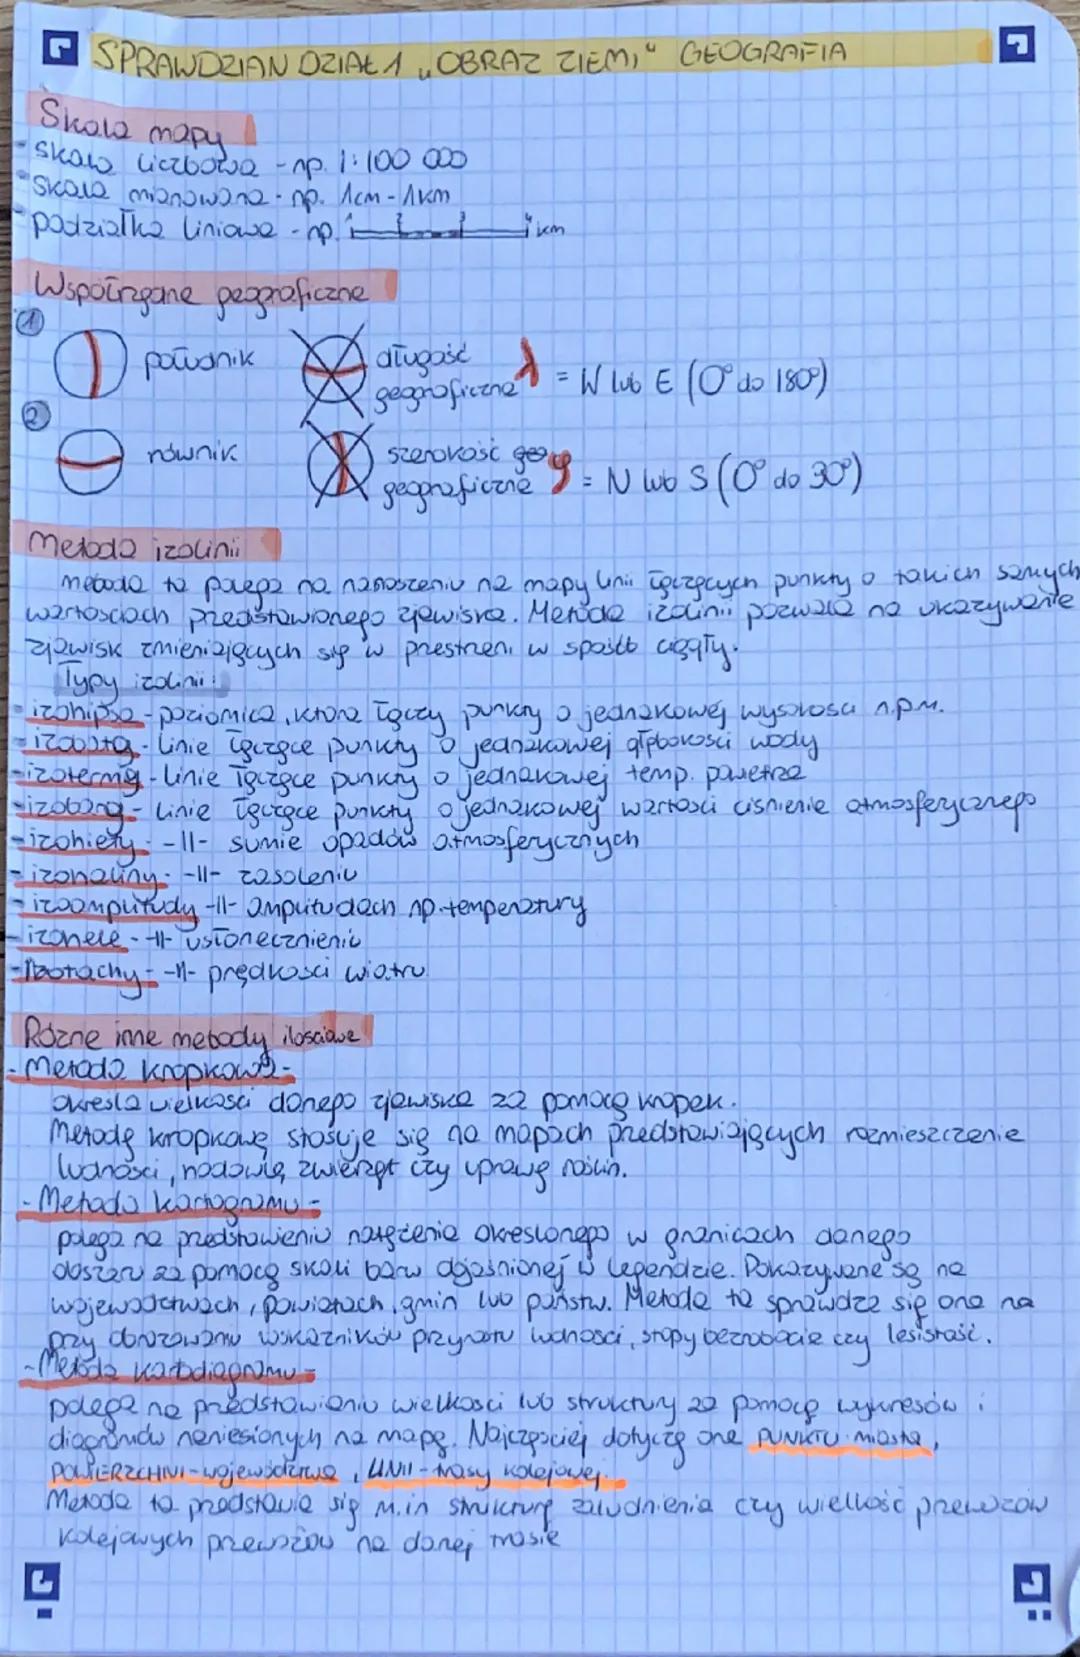 SPRAWDZIAN DZIAŁ 1 „OBRAZ ZIEMI" GEOGRAFIA
Skala mapy
- skala liczbowa - np. 1:100 000
- skala mianowana - np. 1cm - 1km
- podziałka liniowa - np. 1 2 3 4 km
Współrzędne geograficzne
① południk długość
geograficzna λ = W lub E (0° do 180°)
② równik szerokość geo
geograficzna φ = N lub S (0° do 30°)
Metoda izolinii
metoda ta polega na nanoszeniu na mapy linii łączących punkty o takich samych
wartościach przedstawionego zjawiska. Metoda izolinii pozwala na ukazywanie
zjawisk zmieniających się w przestrzeni w sposób ciągły.
Typy izolinii:
- izohipsa - poziomica, która łączy punkty o jednakowej wysokości n.p.m.
- izobata - linie łączące punkty o jednakowej głębokości wody
- izotermy - linie łączące punkty o jednakowej temp. powietrza
- izobary - linie łączące punkty o jednakowej wartości ciśnienie atmosferycznego
- izohiety - -||- sumie opadów atmosferycznych
- izohaliny - -||- zasoleniu
- izoamplitudy -||- amplitudach np. temperatury
- izohele - -||- usłonecznieniu
- Izotachy - -||- prędkości wiatru
Różne inne metody ilościowe
- Metoda kropkowa -
określa wielkości danego zjawiska za pomocą kropek.
Metodę kropkową stosuje się na mapach przedstawiających rozmieszczenie
ludności, hodowlę zwierząt czy uprawę roślin.
- Metoda kartogramu -
polega na przedstawieniu natężenia określonego w granicach danego
obszaru za pomocą skali barw objaśnionej w legendzie. Pokazywane są na
województwach, powiatach, gmin lub państw. Metoda ta sprawdza się ona na
przy obrazowaniu wskaźników przyrostu ludności, stopy bezrobocia czy lesistość.
- Metoda kartodiagramu -
polega na przedstawieniu wielkości lub struktury za pomocą wykresów i
diagramów naniesionych na mapę. Najczęściej dotyczą one PUNKTU - miasta,
POWIERZCHNI - województwa, LINII - trasy kolejowej.
Metoda ta przedstawia się m.in strukturę zaludnienia czy wielkość przewozów
kolejowych przewozów na danej trasie